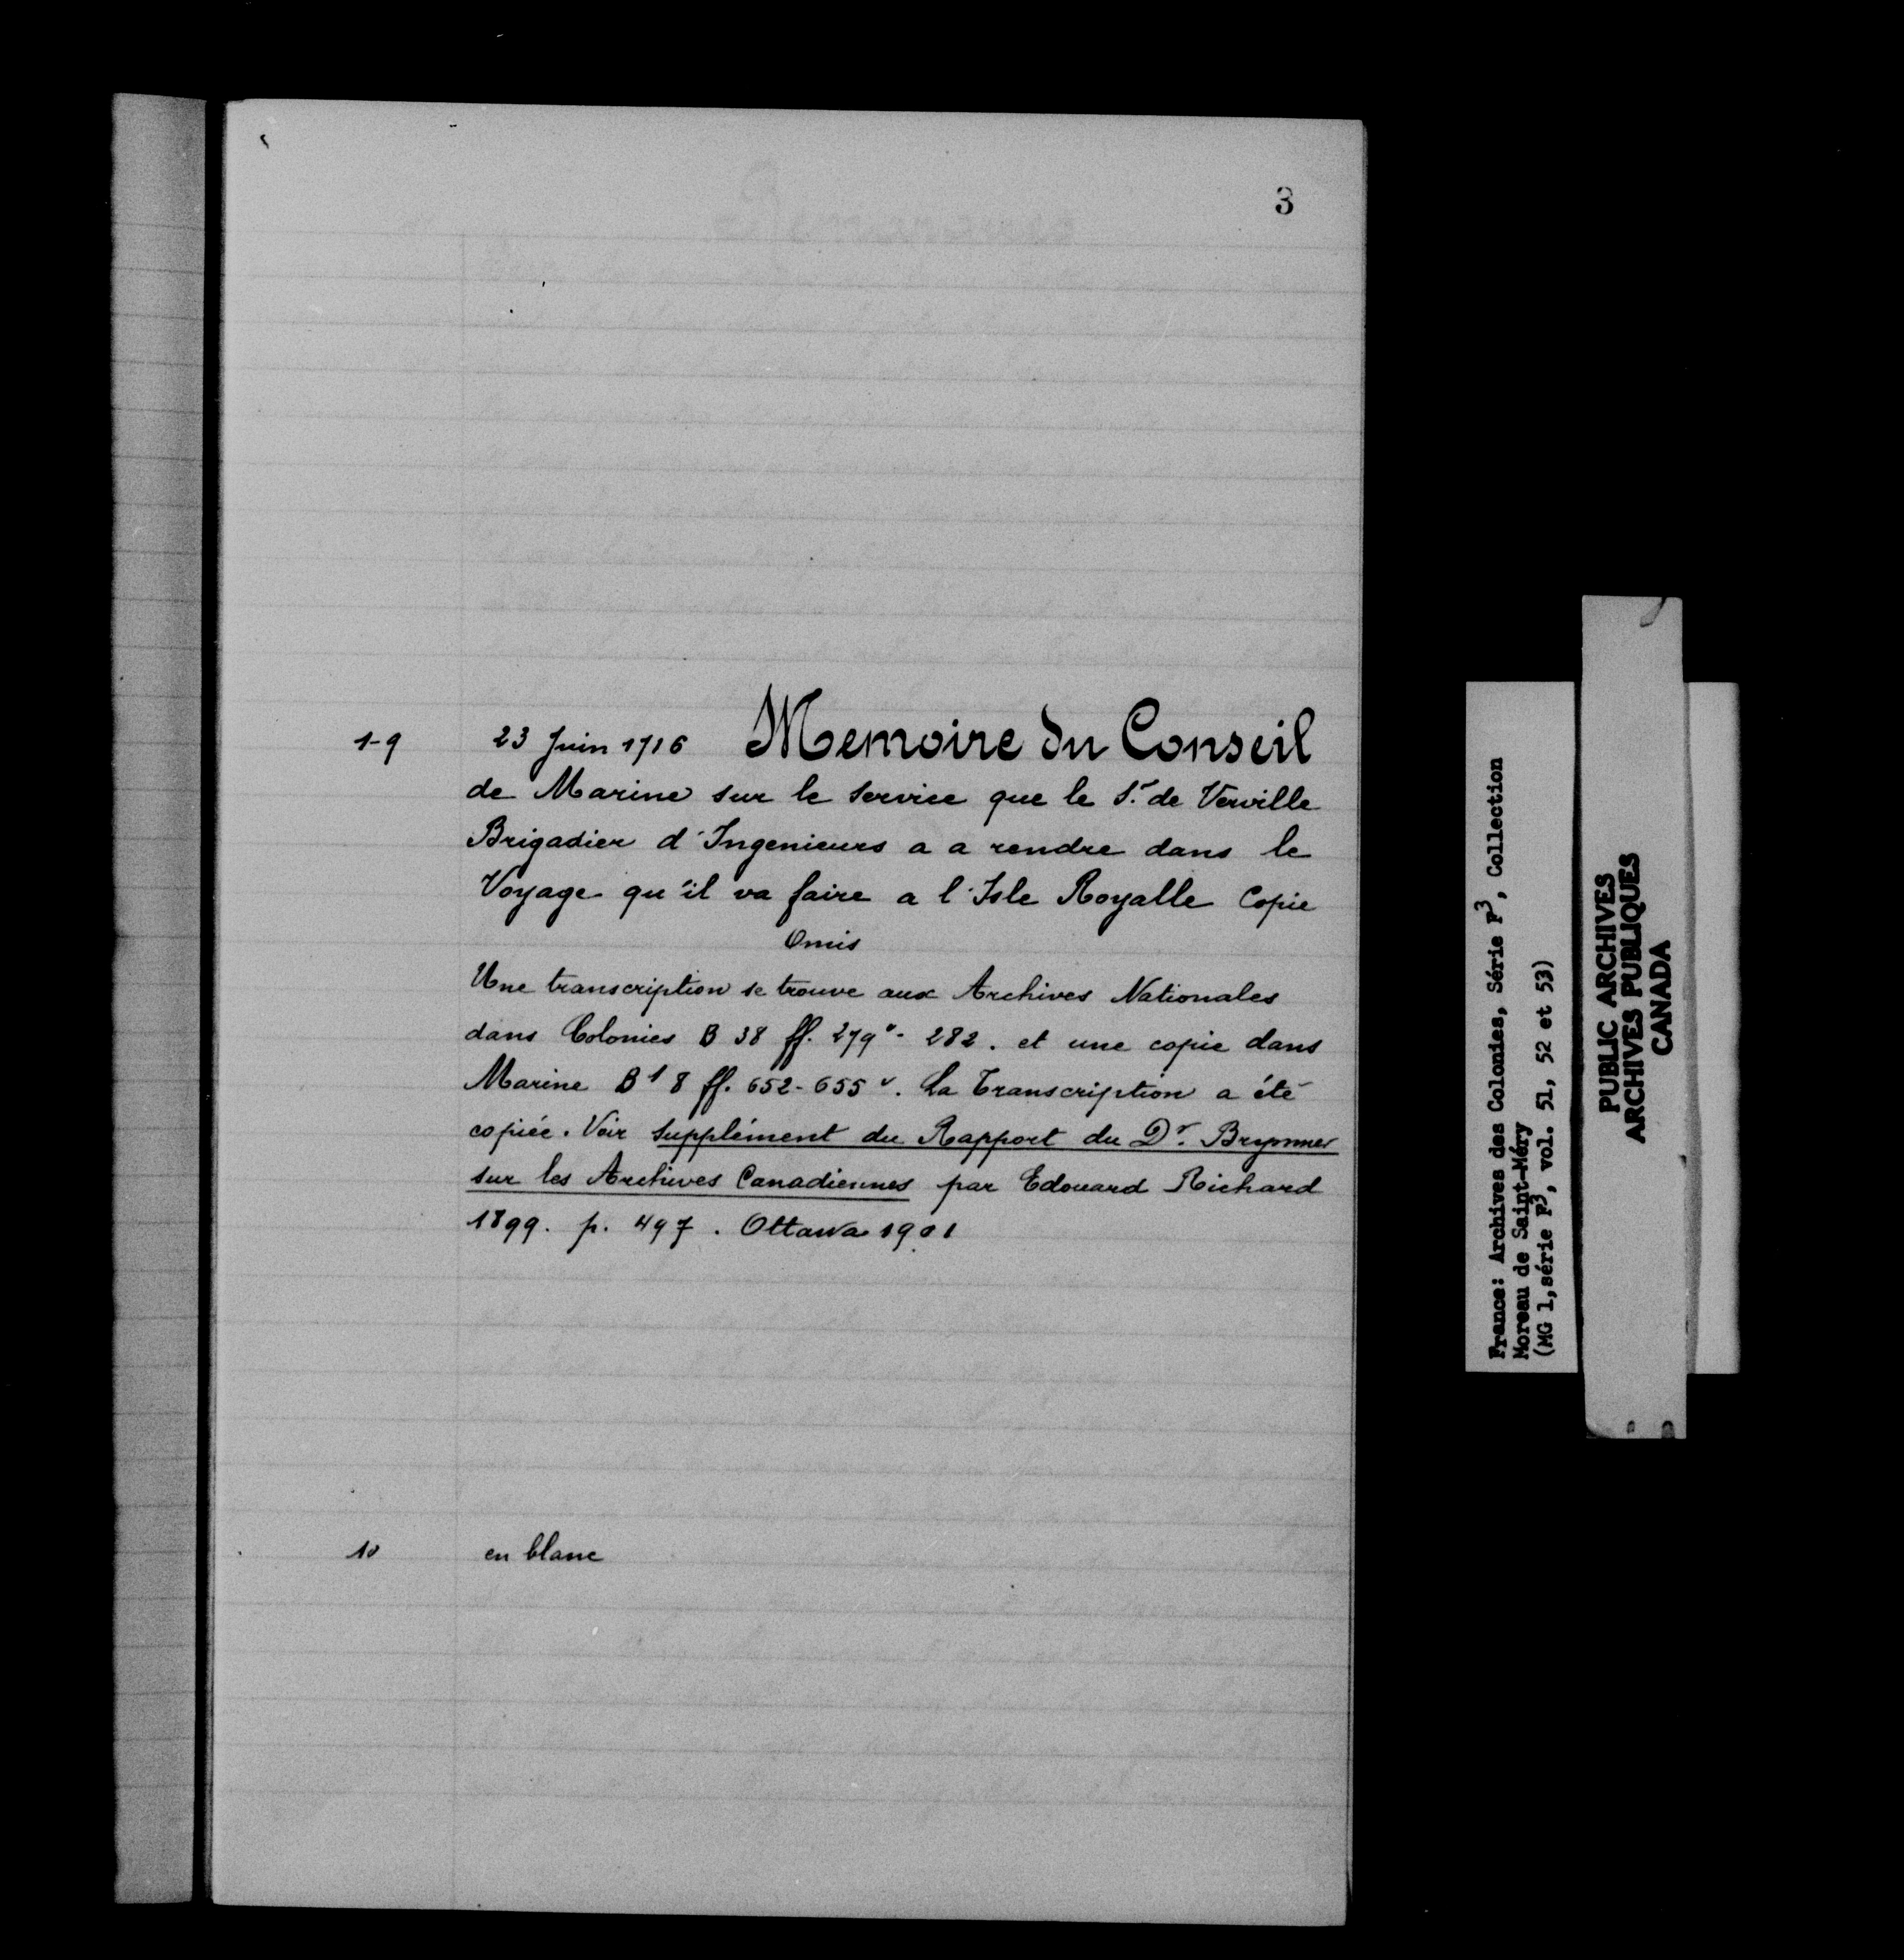 3
1-9 23 Juin 1716 Memoire du Conseil
de Marine sur le service que le S.r de Verville
Brigadier d'Ingenieurs a a rendre dans le
Voyage qu'il va faire a l'Isle Royalle Copie
Omis
Une transcription se trouve aux Archives Nationales
dans Colonies B 38 ff. 279v - 282. et une copie dans
Marine B1 8 ff. 652-655v. La Transcription a été
copiée. Voir supplément du Rapport du Dr. Brymner
sur les Archives Canadiennes par Edouard Richard
1899. p. 497. Ottawa 1901
10 en blanc
France: Archives des Colonies, Série F3, Collection
Moreau de Saint-Méry
(MG 1, série F3, vol. 51, 52 et 53)
PUBLIC ARCHIVES
ARCHIVES PUBLIQUES
CANADA